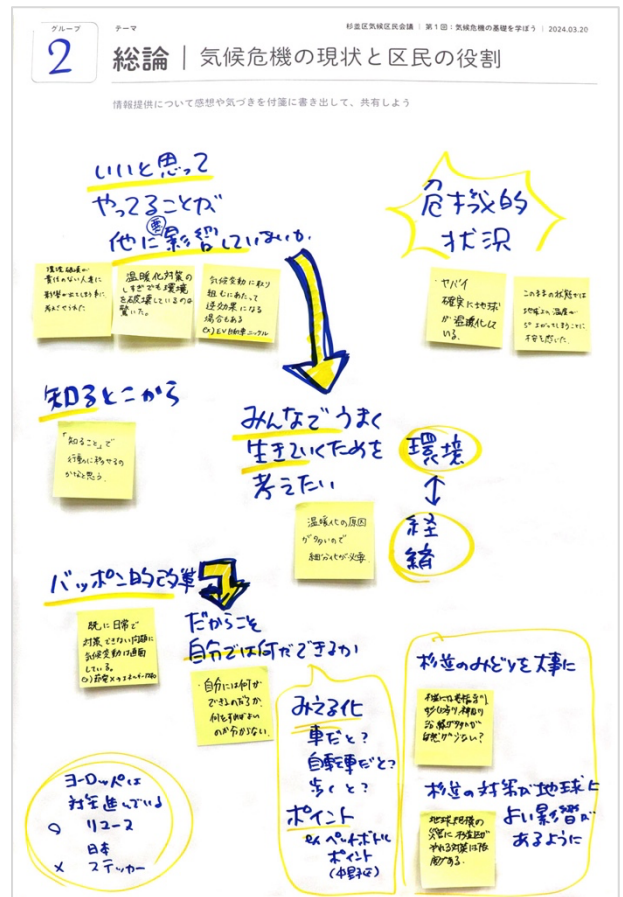 グループ
2
テーマ
杉並区気候区民会議 | 第1回:気候危機の基礎を学ぼう | 2024.03.20
総論 | 気候危機の現状と区民の役割
情報提供について感想や気づきを付箋に書き出して、共有しよう
いいと思って
やってることが
悪
他に影響していないか
環境破壊が
責任のない人達に
影響が出てしまう事に
考えさせられた
温暖化対策の
しすぎでも環境
を破壊しているのは
驚いた。
気候変動に取り
組むにあたって
逆効果になる
場合もある
ex) EV自動車ニッケル
危機的
状況
・ヤバイ
確実に地球
が温暖化して
いる。
このままの状態では
地球上の温度が
上がってしまうことに
不安を感じた。
知るとこから
「知ること」で
行動に移せるの
かなと思う。
みんなでうまく
生きていくためを
考えたい
環境
↕
経
緒
温暖化の原因
が多いので
細分化が必要
バッポン的改革
既に日常で
対策できない問題に
気候変動は直面
している。
だからこそ
自分では何ができるか
・自分には何が
できるのだろうか
何をすればよい
のか分からない
みえる化
車だと?
自転車だと?
歩くと?
ポイント
ex ペットボトル
ポイント
(中野区)
杉並のみどりを大事に
自然が少ない?
杉並の対策が地球に
よい影響が
あるように
地球規模の
災害に杉並区が
やれる対策には限
度がある。
ヨーロッパは
対策進んでいる
○ リユース
日本
× ステッカー